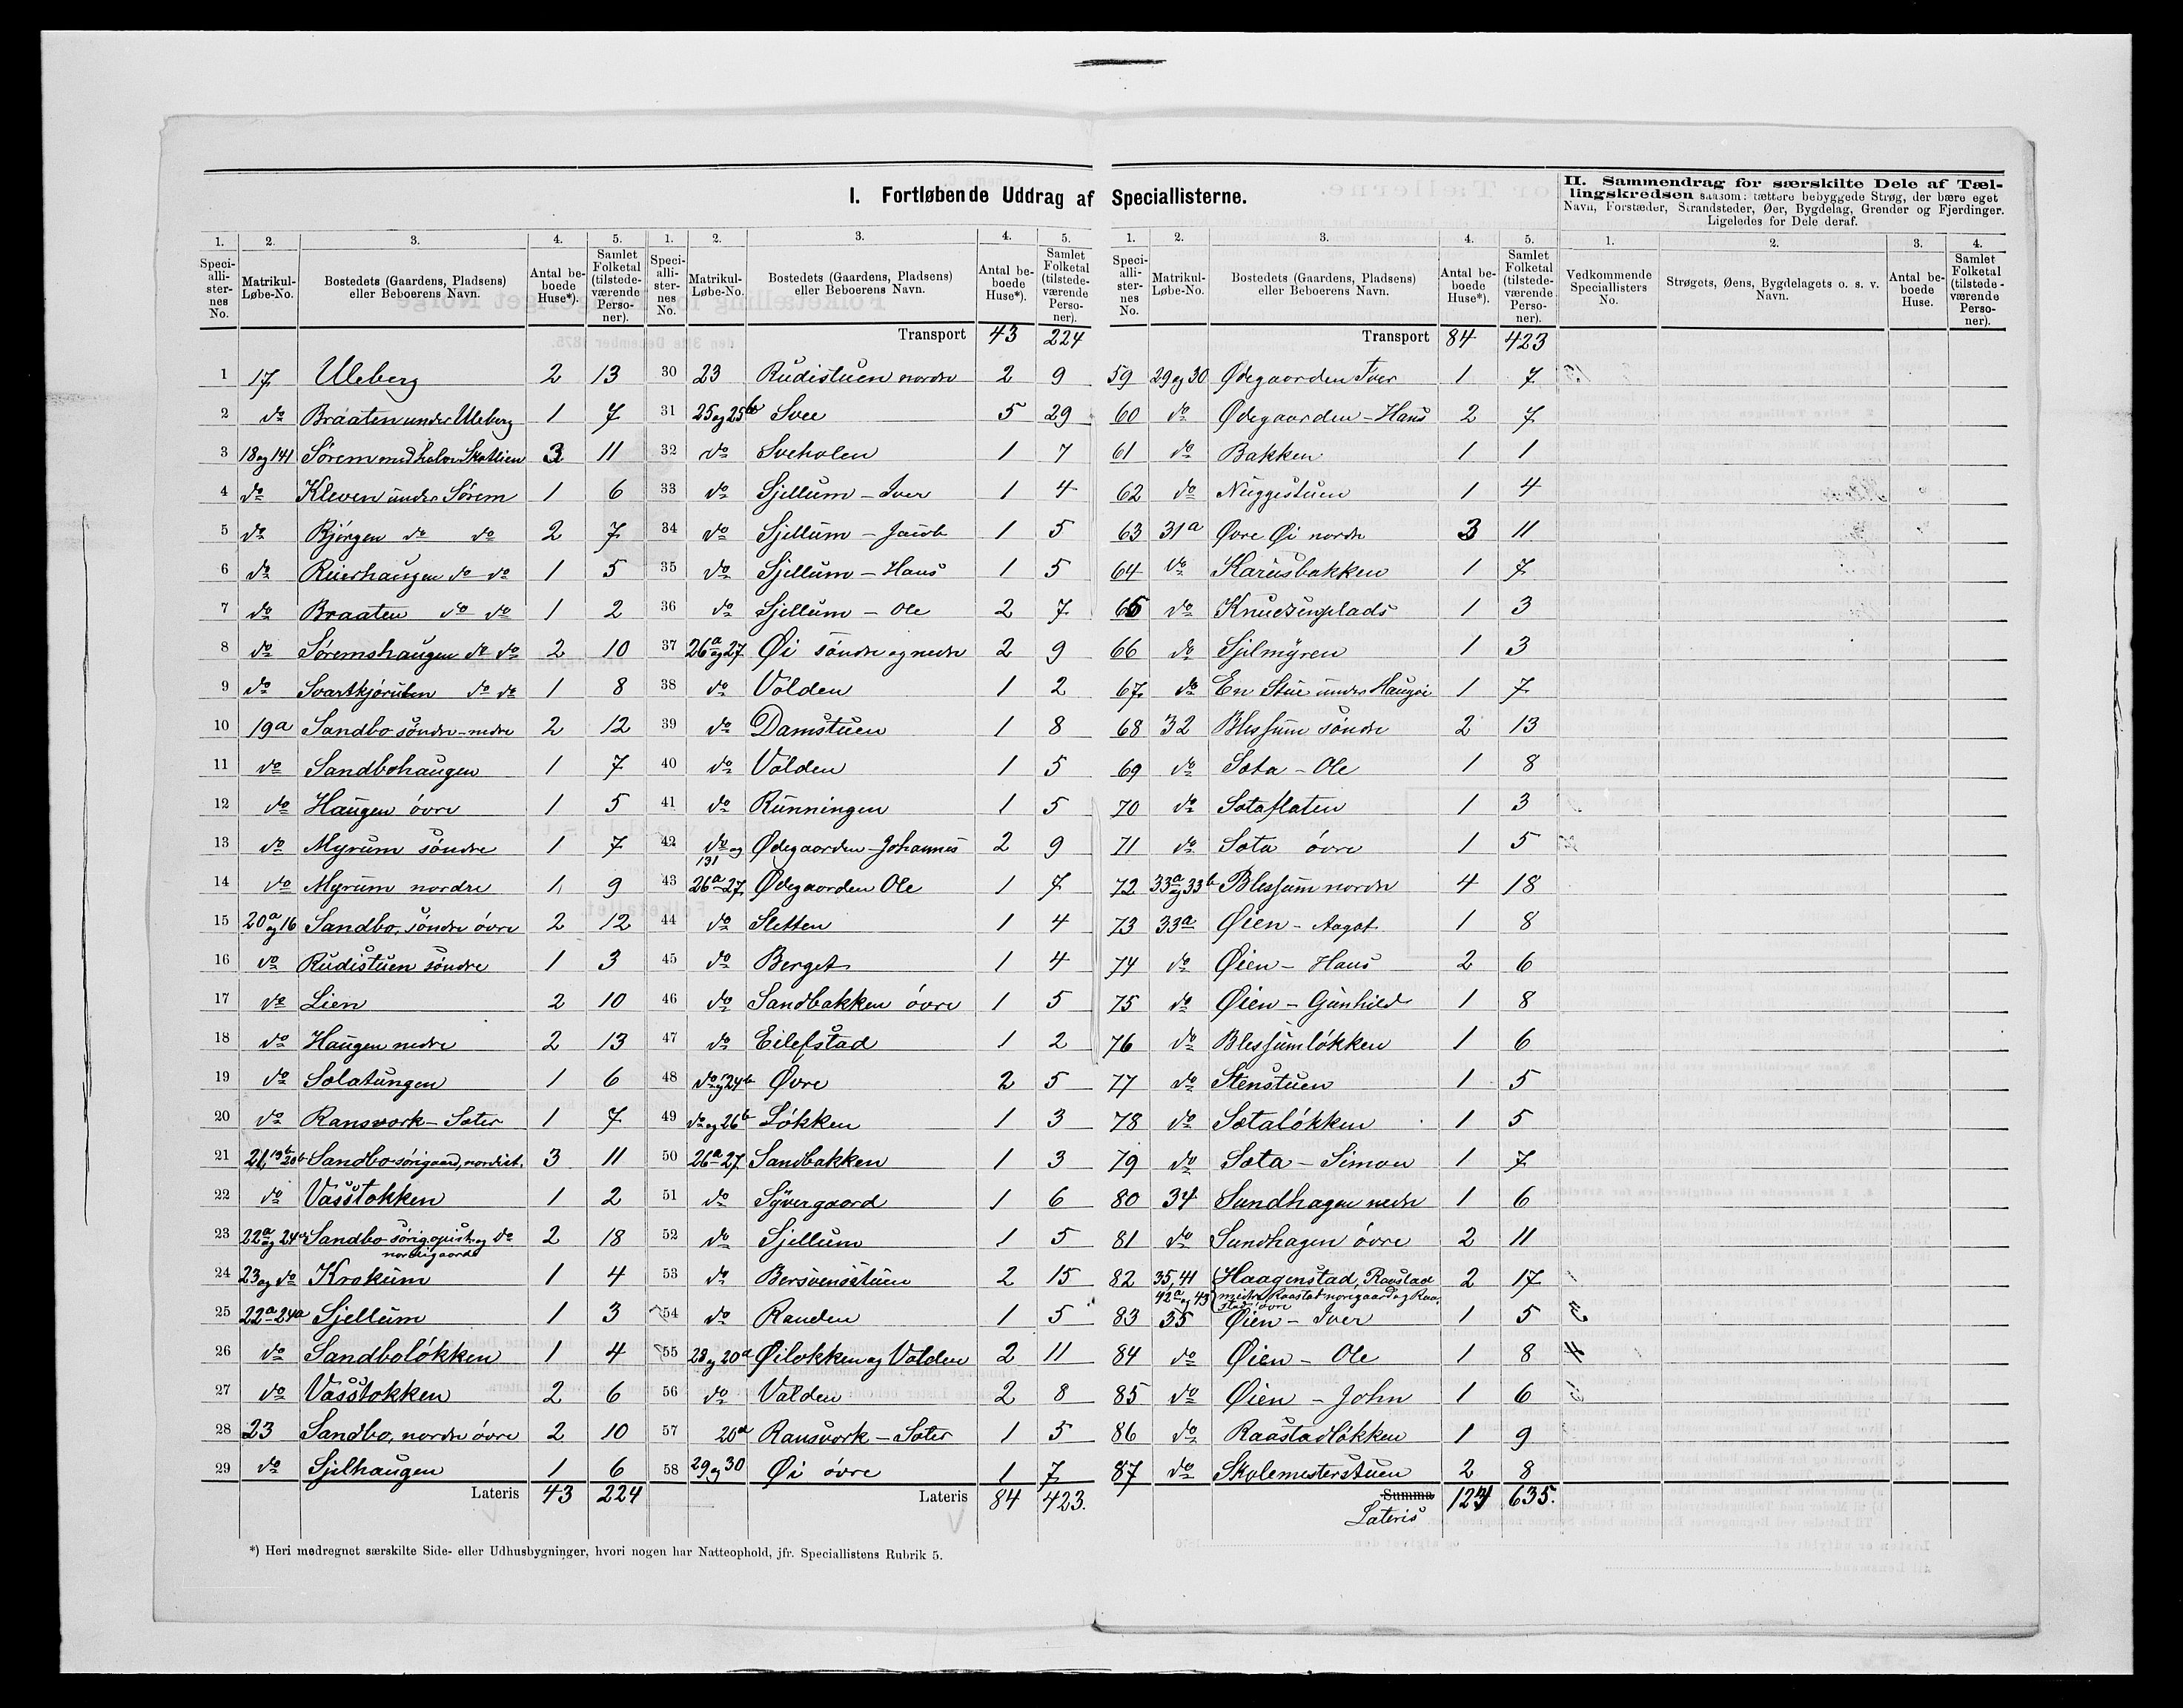 I. Fortløbende Uddrag af Speciallisterne.
1. 2. 3. 4. 5.
Speciallisternes No. Matrikul-Løbe-No. Bostedets (Gaardens, Pladsens) eller Beboerens Navn. Antal beboede Huse*). Samlet Folketal (tilstedeværende Personer).
1 17 Uleberg 2 13
2 do Braaten under Uleberg 1 7
3 18 og 141 Sørem med halve Skatlien 3 11
4 do Kleven under Sørem 1 6
5 do Bjørgen do do 2 7
6 do Reierhaugen do do 1 5
7 do Braaten do do 1 2
8 do Søremshaugen do do 2 10
9 do Svartkjørulen do do 1 8
10 19a Sandbo søndre-nedre 2 12
11 do Sandbohaugen 1 7
12 do Haugen øvre 1 5
13 do Myrum søndre 1 7
14 do Myrum nordre 1 9
15 20a og 16 Sandbo, søndre øvre 2 12
16 do Rudistuen søndre 1 3
17 do Lien 2 10
18 do Haugen nedre 2 13
19 do Solatungen 1 6
20 do Ransvork-Sæter 1 7
21 21, 19b 20b Sandbo sørigaard, nordist. 3 11
22 do Vasstokken 1 2
23 22a og 24a Sandbo sørigopist. og do
nordrigaard 2 18
24 23 og do Krokum 1 4
25 22a-24a Sjellum 1 3
26 do Sandboløkken 1 4
27 do Vasstokken 2 6
28 23 Sandbo, nordre øvre 2 10
29 do Sjelhaugen 1 6
Lateris 43 224
1. 2. 3. 4. 5.
Speciallisternes No. Matrikul-Løbe-No. Bostedets (Gaardens, Pladsens) eller Beboerens Navn. Antal beboede Huse*). Samlet Folketal (tilstedeværende Personer).
Transport 43 224
30 23 Rudistuen nordre 2 9
31 25 og 25b Svee 5 29
32 do Sveholen 1 7
33 do Sjellum - Iver 1 4
34 do Sjellum - Jacob 1 5
35 do Sjellum - Hans 1 5
36 do Sjellum - Ole 2 7
37 26a og 27 Øi søndre og nedre 2 9
38 do Volden 1 2
39 do Damstuen 1 8
40 do Volden 1 5
41 do Runningen 1 5
42 do og 131 Ødegaarden-Johannes 2 9
43 26a-27 Ødegaarden Ole 1 7
44 do Sletten 1 4
45 do Berget 1 4
46 do Sandbakken øvre 1 5
47 do Eilefstad 1 2
48 do og 24b Øvre 2 5
49 do og 26b Løkken 1 3
50 26a-27 Sandbakken 1 3
51 do Syvergaard 1 6
52 do Sjellum 1 5
53 do Bersvenstuen 2 15
54 do Randen 1 5
55 28 og 20a Øiløkken og Volden 2 11
56 do Valden 2 8
57 20a Ransvork - Sæter 1 5
58 29 og 30 Øi øvre 1 7
Lateris 84 423.
1. 2. 3. 4. 5.
Speciallisternes No. Matrikul-Løbe-No. Bostedets (Gaardens, Pladsens) eller Beboerens Navn. Antal beboede Huse*). Samlet Folketal (tilstedeværende Personer).
Transport 84 423
59 29 og 30 Ødegaarden Iver 1 7
60 do Ødegaarden - Hans 2 7
61 do Bakken 1 1
62 do Nuggestuen 1 4
63 31a Øvre Øi nordre 3 11
64 do Karusbakken 1 7
65 do 1 3
66 do Sjelmyren 1 3
67 do En Stue under Haugøi 1 7
68 32 Blessum søndre 2 13
69 do Sota - Ole 1 8
70 do Sotaflaten 1 3
71 do Sota øvre 1 5
72 33a og 33b Blessum nordre 4 18
73 33a Øien - Aagot 1 8
74 do Øien - Hans 2 6
75 do Øien - Gunhild 1 8
76 do Blessumløkken 1 6
77 do Stenstuen 1 5
78 do Sotaløkken 1 5
79 do Sota - Simon 1 7
80 34 Sundhagen nedre 1 6
81 do Sundhagen øvre 2 11
82 35, 41 42a og 43 Haagenstad, Raastad
nedre, Raastad norigaard og Raastad øvre 2 17
83 35 Øien - Iver 1 5
84 do Øien - Ole 1 8
85 do Øien - John 1 6
86 do Raastadløkken 1 9
87 do Skolemesterstuen 2 8
Summa 124 635.
Lateris
II. Sammendrag for særskilte Dele af Tællingskredsen saasom: tættere bebyggede Strøg, der bære eget
Navn, Forstæder, Strandsteder, Øer, Bygdelag, Grender og Fjerdinger.
Ligeledes for Dele deraf.
1. 2. 3. 4.
Vedkommende Speciallisters No. Strøgets, Øens, Bygdelagets o. s. v. Navn. Antal beboede Huse. Samlet Folketal (tilstedeværende Personer).
*) Heri medregnet særskilte Side- eller Udhusbygninger, hvori nogen har Natteophold, jfr. Speciallistens Rubrik 5.